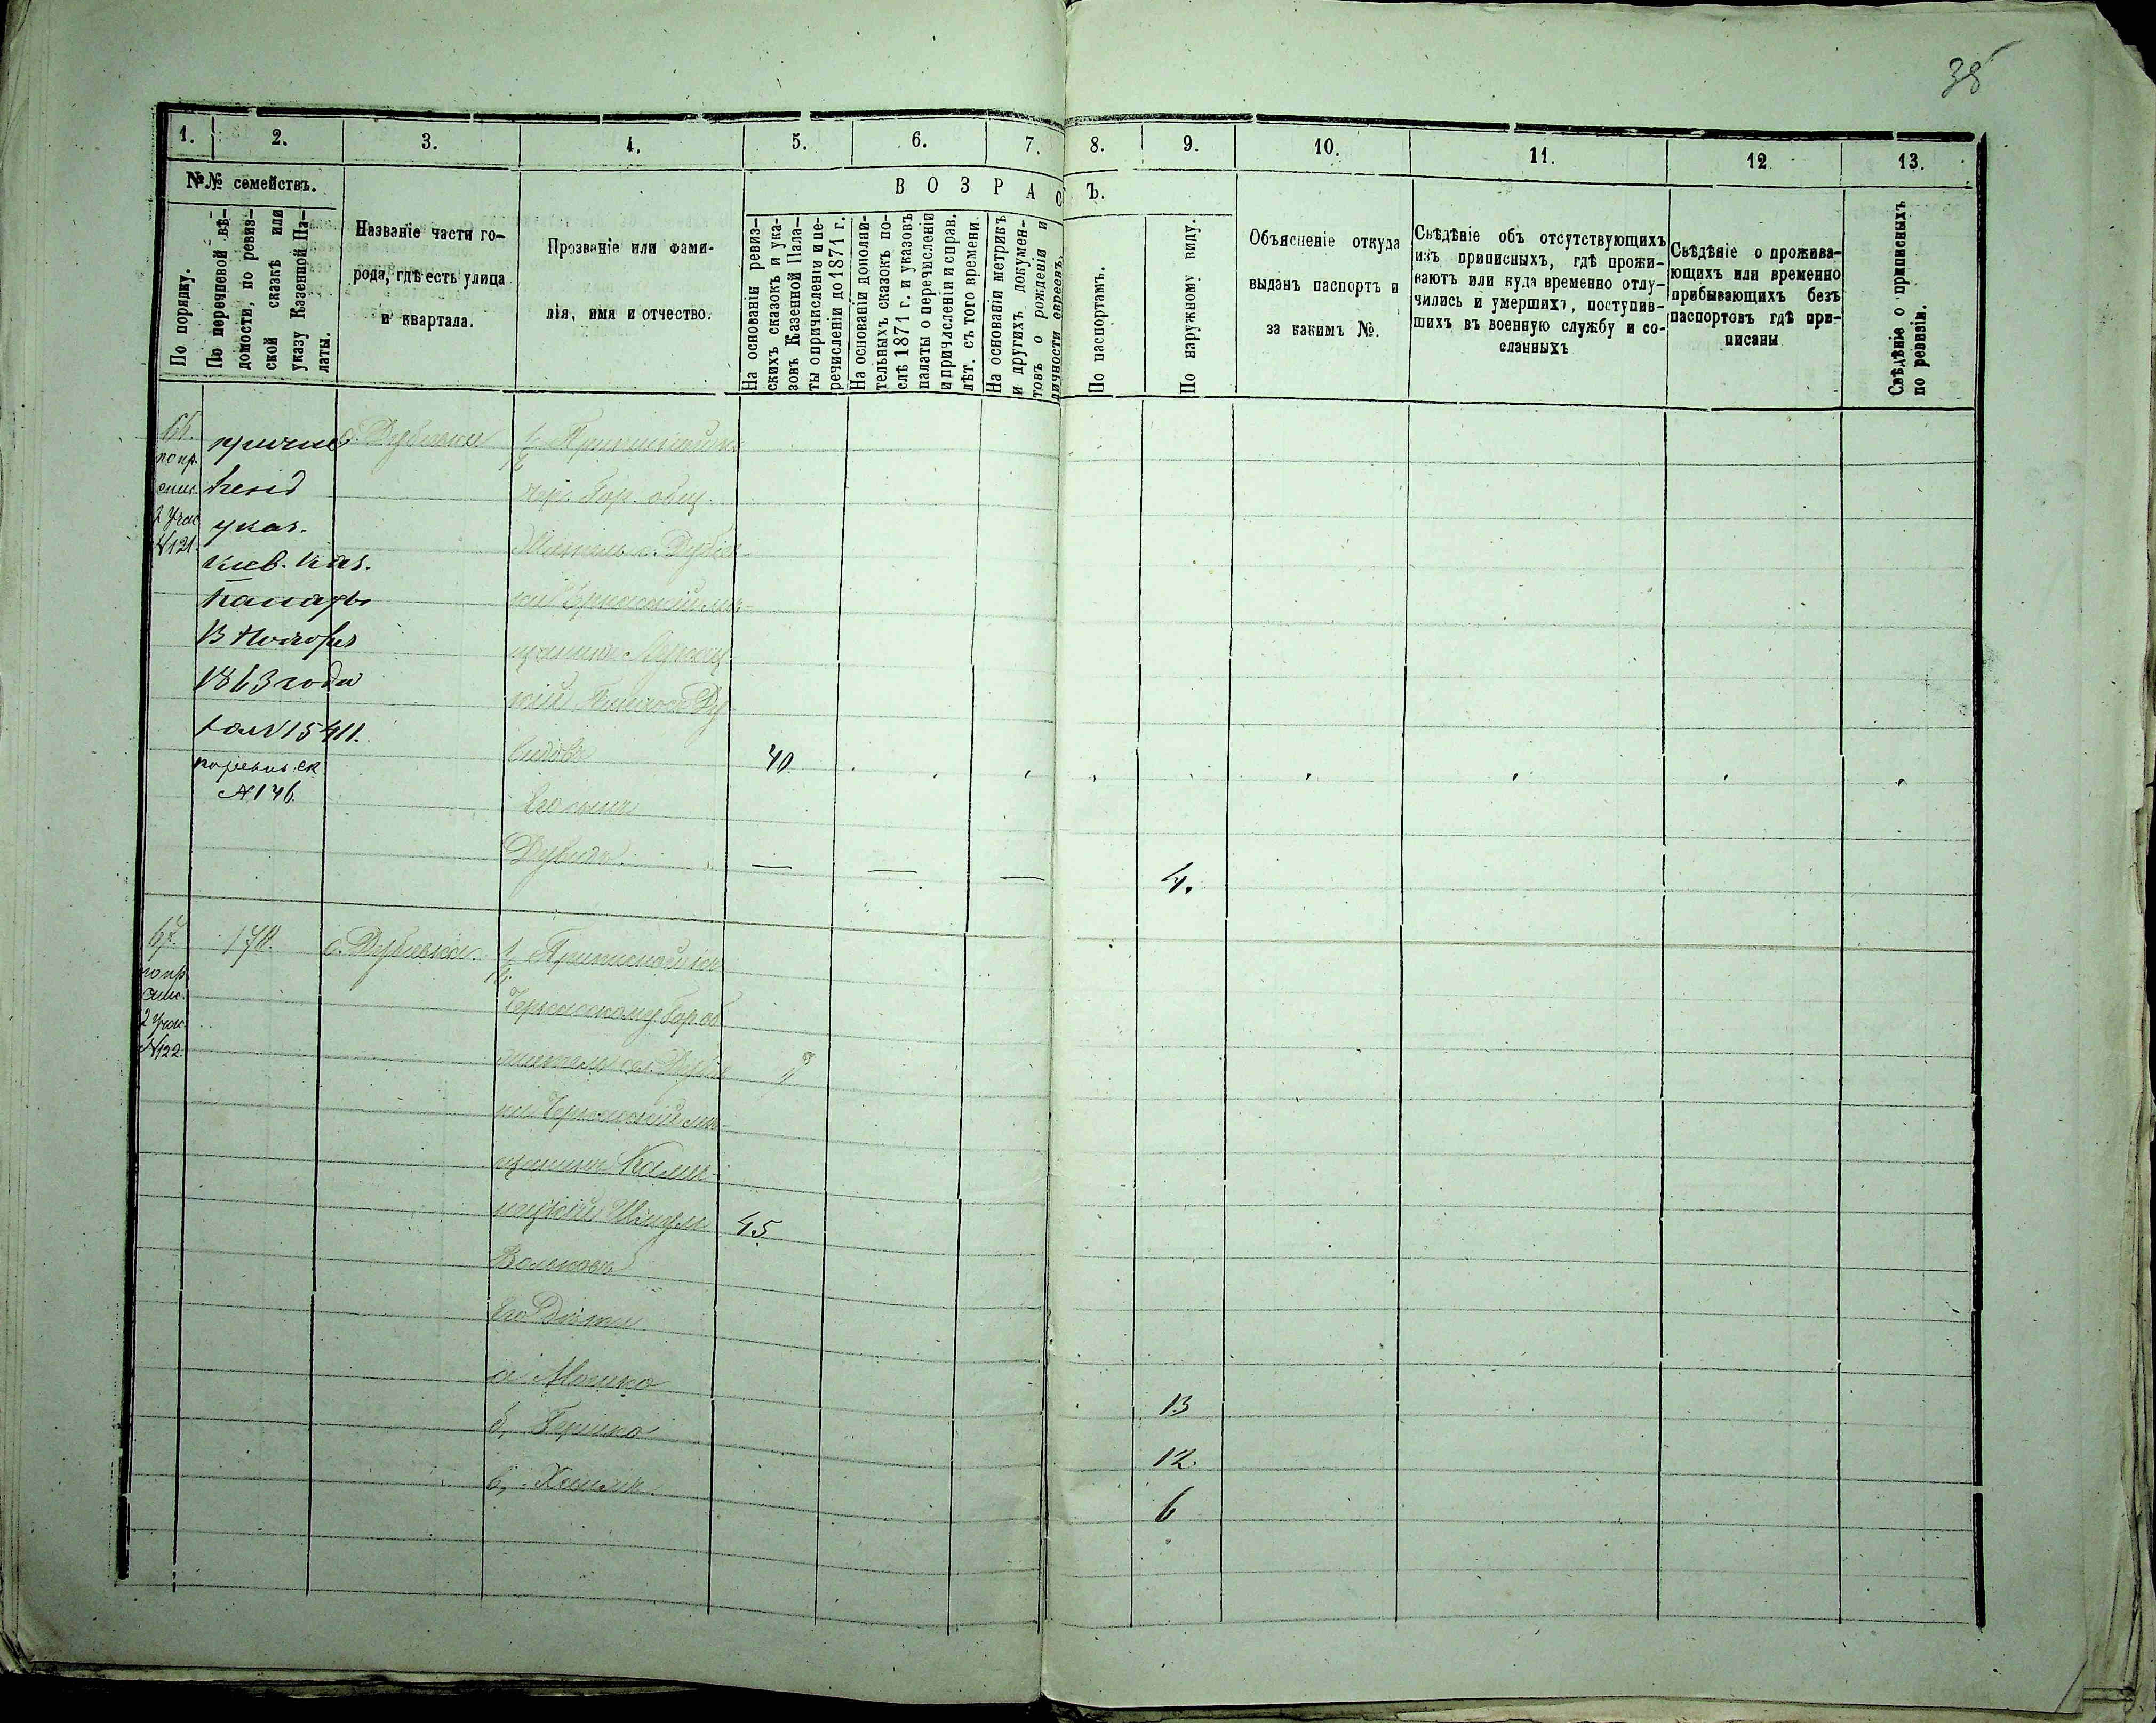 38
1. 2. 3. 4. 5. 6. 7. 8. 9. 10. 11. 12 13.
№№ семействъ.
По порядку.
По перечневой вѣ-
домости, по ревиз-
ской сказкѣ или
указу Казенной Па-
латы.
Названіе части го-
рода, гдѣ есть улица
и квартала.
Прозваніе или фами-
лія, имя и отчество.
ВОЗРАС Ъ.
На основаніи ревиз-
скихъ сказокъ и ука-
зовъ Казенной Пала-
ты о причисленіи и пе-
речисленіи до 1871 г.
На основаніи дополни-
тельныхъ сказокъ по-
слѣ 1871 г. и указовъ
палаты о перечисленіи
и причисленіи и справ.
лѣт. съ того времени.
На основаніи метрикъ
и другихъ докумен-
товъ о рожденіи и
личности евреевъ.
По паспортамъ.
По наружному виду.
Объясненіе откуда
выданъ паспортъ и
за какимъ №.
Свѣдѣніе объ отсутствующихъ
изъ приписныхъ, гдѣ прожи-
ваютъ или куда временно отлу-
чились и умершихъ, поступив-
шихъ въ военную службу и со-
сланныхъ
Свѣдѣніе о прожива-
ющихъ или временно
прибывающихъ безъ
паспортовъ гдѣ при-
писаны
Свѣдѣніе о приписныхъ
по ревизіи.
66.
по пр.
спис.
2 Учас
№121.
причис
указ.
Киев. Каз.
Палаты
13 Ноября
1863 года
за №15411.
по ревиз. ск
№146.
с. Дубіевки
Приписной къ
Чер. Гор. общ.
Житель с. Дубіев-
ки Черкасский мѣ-
щанинъ
Ду-
видовъ 40
Его сынъ
Дувидъ — — — 4.
67.
по пр
спис.
2 Учас.
№122.
178.
с. Дубіевки.
Приписной къ
Черкасскому Гор. об
житель сел. Дубіев
ки Черкасский мѣ-
щанинъ Камi-
нецкій 45
Волковъ
Его дѣти
а, Мошко 13
б, Гершко 12.
в, Хаимъ 6